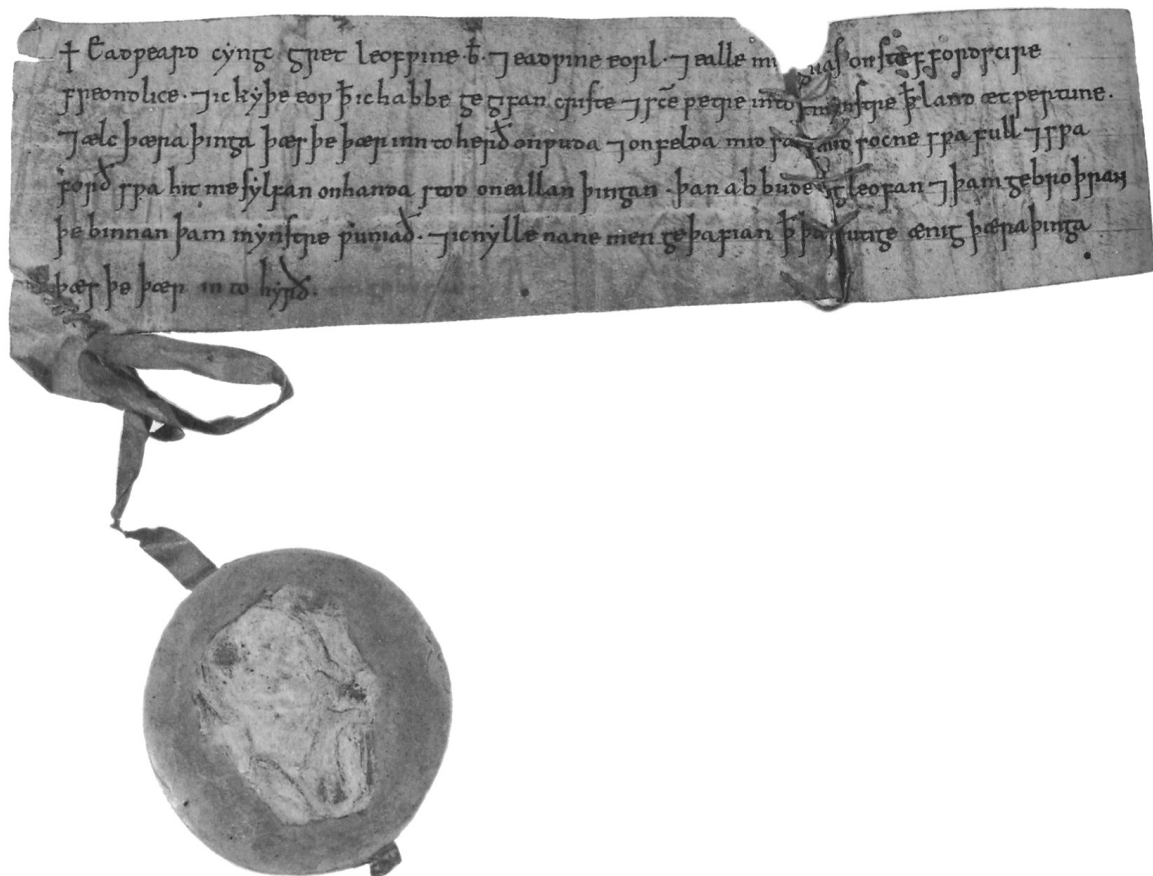 ✝ Eadƿeard cẏngc gret leofƿine .b̄. ⁊ eadƿine eorl. ⁊ ealle on stæffordscire
freondlice. ⁊ ic kẏþe eoƿ ꝥ ic habbe gegifan criste ⁊ sc̄e petre into ꝥ land æt pertune.
⁊ ælc þæra þinga þæs þe þær inn to herð on ƿuda ⁊ on felda mid socne sƿa full ⁊ sƿa
forð sƿa hit me sẏlfan on handa stod on eallan þingan. þan abbude leofan ⁊ þam gebroþran
þe binnan þam mẏnstre ƿuniað. ⁊ ic nẏlle nane men geþafian ꝥ utige ænig þæra þinga
þæs þe þær in to hẏrð.